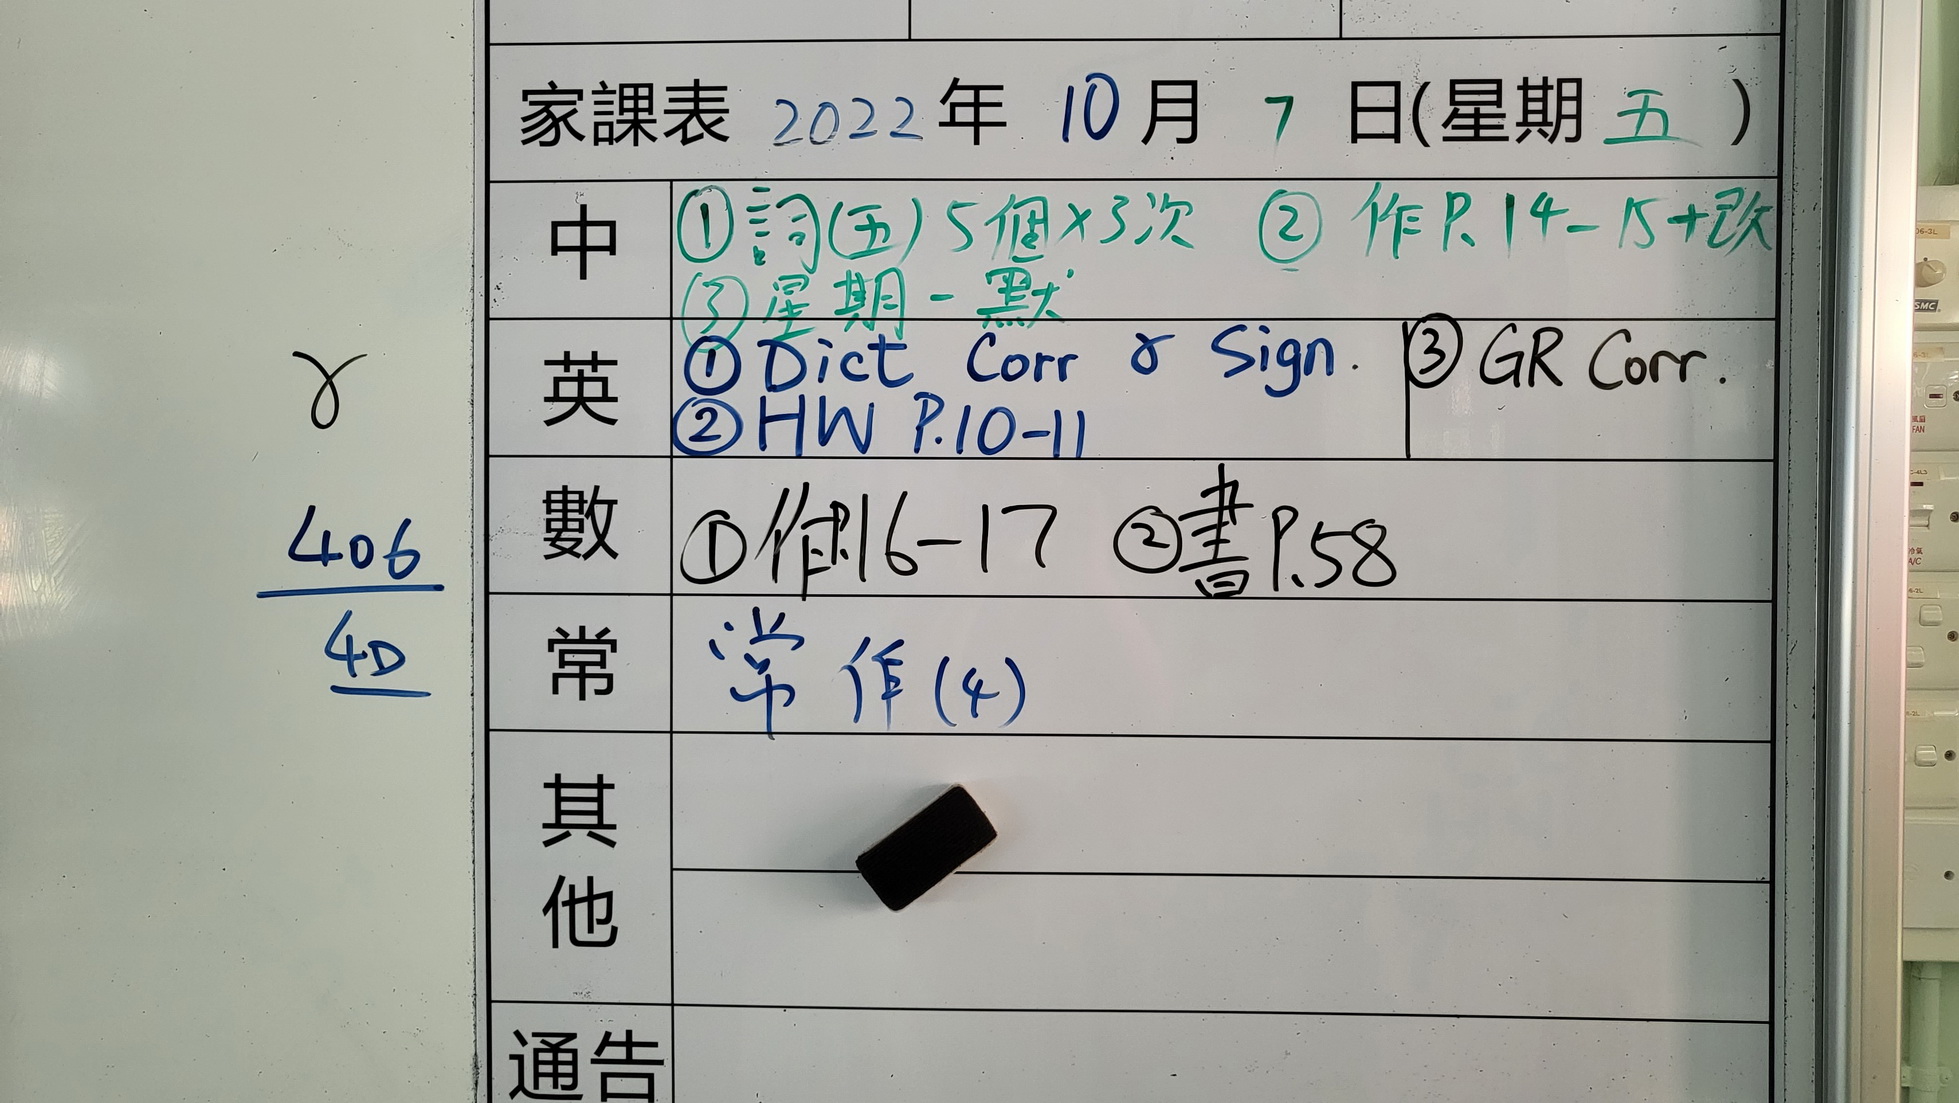 家課表 2022年 10月 7 日(星期 五 )
中
①詞(五)5個×3次 ②作P.14-15+改
③星期一默
英
①Dict Corr & Sign.
②HW P.10-11
③GR Corr.
數
①作P.16-17 ②書P.58
常
常作(4)
其他
通告
γ
406
4D
SMC
FAN
A/C